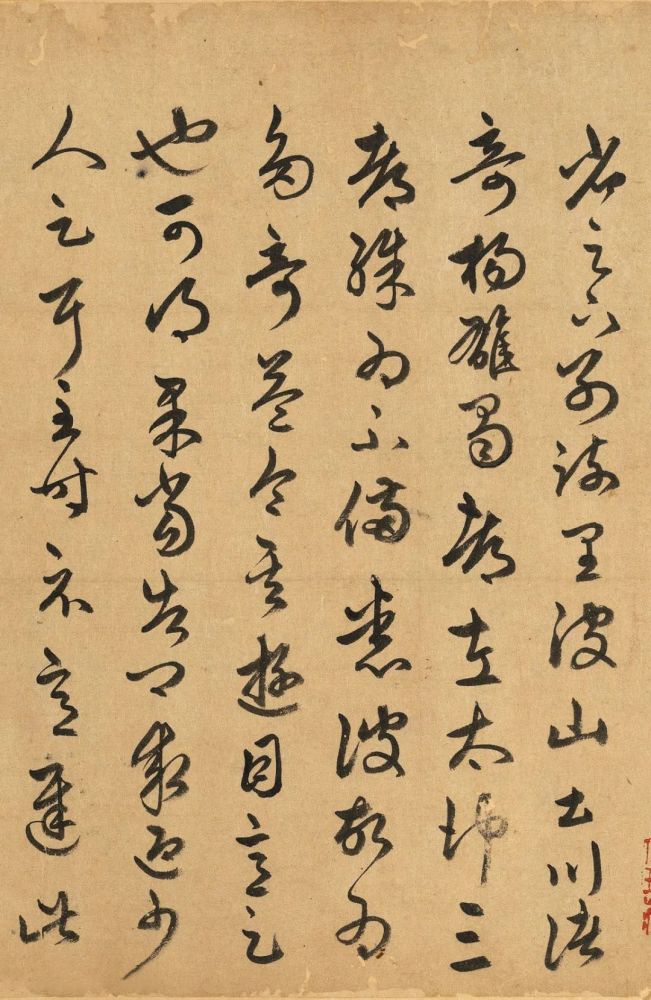 省足下別疏具彼山土川諸
奇揚雄蜀都左太沖三
都殊為不備悉彼故為
多奇益令其遊目意足
也可得果當告卿求迎少
人足耳至時示意遲此